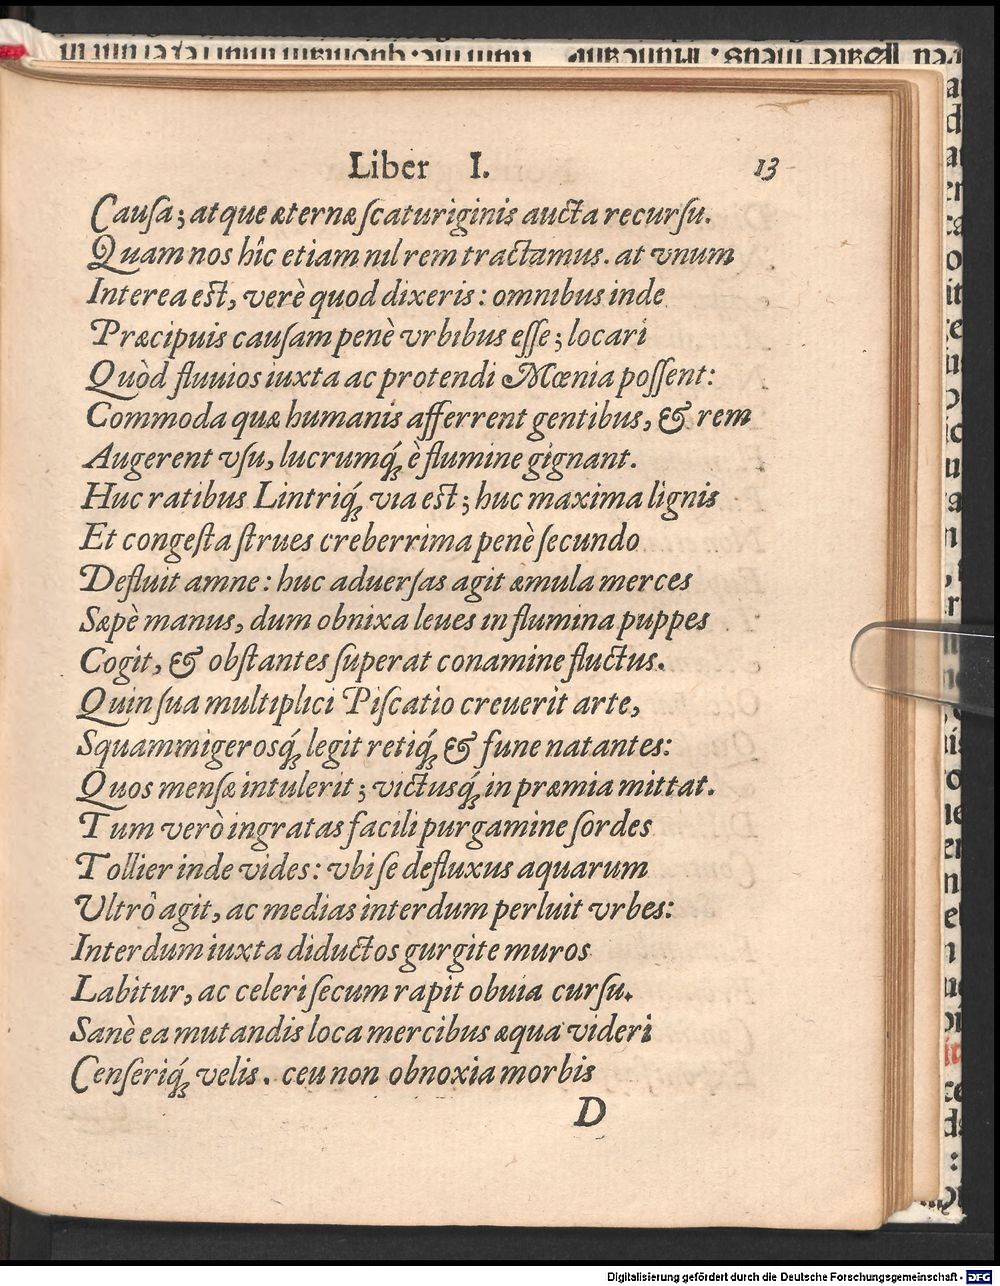 Liber I. 13
Cauſa; atque æternæ ſcaturiginis aucta recurſu.
Quam nos hîc etiam nil rem tractamus. at vnum
Interea est, verè quod dixeris: omnibus inde
Præcipuis cauſam penè vrbibus eſſe; locari
Quòd fluuios iuxta ac protendi Mœnia poſſent:
Commoda quæ humanis afferrent gentibus, & rem
Augerent vſu, lucrumq́; è flumine gignant.
Huc ratibus Lintriq́; via est; huc maxima lignis
Et congeſta ſtrues creberrima penè ſecundo
Defluit amne: huc aduerſas agit æmula merces
Sæpè manus, dum obnixa leues in flumina puppes
Cogit, & obſtantes ſuperat conamine fluctus.
Quin ſua multiplici Piſcatio creuerit arte,
Squammigerosq́; legit retiq́; & fune natantes:
Quos menſæ intulerit; victusq́; in præmia mittat.
Tum verò ingratas facili purgamine ſordes
Tollier inde vides: vbi ſe defluxus aquarum
Vltrò agit, ac medias interdum perluit vrbes:
Interdum iuxta diductos gurgite muros
Labitur, ac celeri ſecum rapit obuia curſu.
Sanè ea mutandis loca mercibus æqua videri
Cenſeriq́; velis. ceu non obnoxia morbis
D
Digitalisierung gefördert durch die Deutsche Forschungsgemeinschaft - DFG